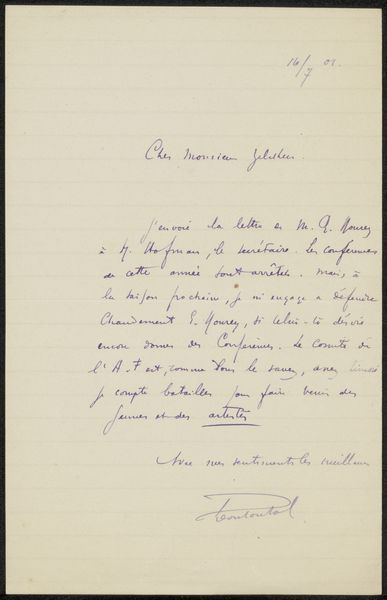 16/7 01.
Cher Monsieur Zilcken.
J'envoie la lettre de M. G. Mourey
à M. Hofman, le secrétaire. Les conférences
de cette année sont arrêtées. Mais, à
la saison prochaine, je m'engage à défendre
chaudement G. Mourey, si celui-là désire
encore donner des Conférences. Le Comité de
l'A. F est, comme vous le savez, assez timoré
je compte batailler pour faire venir des
jeunes et des artistes
Avec mes sentiments les meilleurs